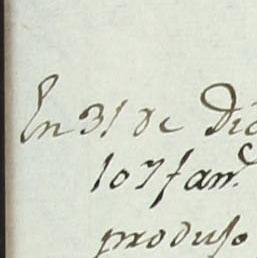 En 31 de Dic
107 fan.
produjo